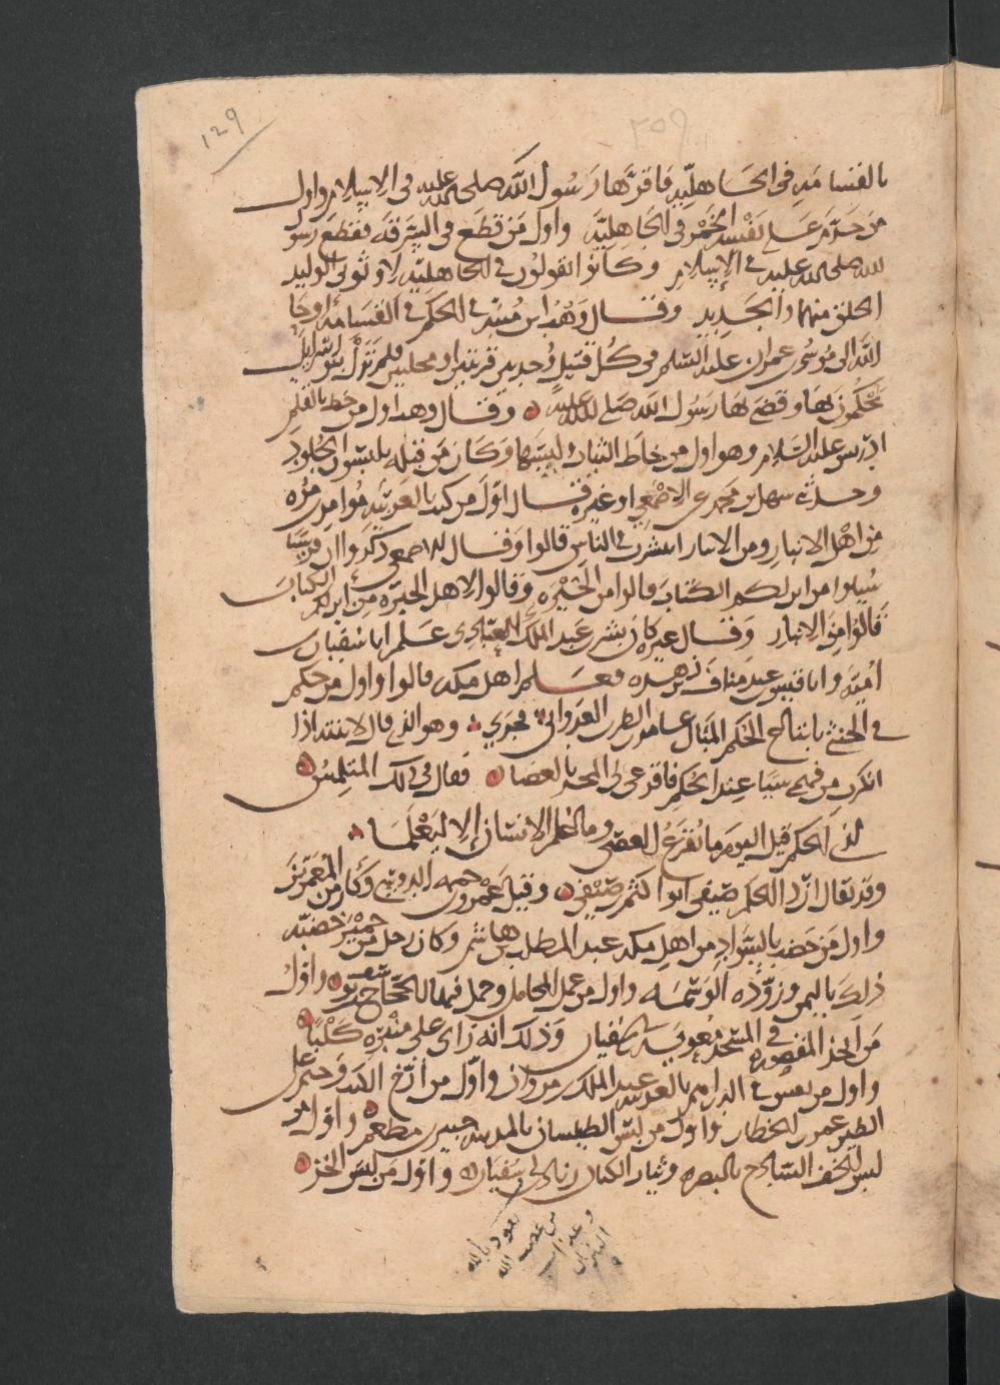 ١٢٩
٢٥٩
بالقسامة في الجاهلية فاقرها رسول الله صلى الله عليه في الاسلام واول
من حرم على نفسه الخمر في الجاهلية واول من قطع في السرقة فقطع رسول
الله صلى الله عليه في الاسلام وكانوا يقولون في الجاهلية لا وثوبي الوليد
الخلق منهما والجديد وقال وهب ابن منبه في الحكم في القسامة اوحا
الله الى موسى بن عمران عليه السلم في كل قتيل وجد بين قريتين او محلتين فلم تزل بنو اسرايل
يحكمون بها وقضى بها رسول الله صلى الله عليه وقال وهب اول من خط بالقلم
ادريس عليه السلام وهو اول من خاط الثياب ولبسها وكان من قبله يلبسون الجلود
وحدثني سهل بن محمد عن الاصمعي او غيره قال اول من كتب بالعربية مرامر بن مره
من اهل الانبار ومن الانبار انتشرت في الناس قالوا وقال الاصمعي ذكروا ان قريشا
سيلوا من اين لكم الكتاب قالوا من الحيره وقالوا لاهل الحيرة من اين لكم الكتاب
قالوا من الانبار وقال غيره كان بشر بن عبد الملك العبادي علم ابا سفيان بن
امية وابا قيس بن عبد مناف بن زهره فعلم اهل مكة قالوا واول من حكم
في الخنثى باتباع الحكم المبال عامر بن الظرب العدواني فجرى وهو الذي قال لابنته اذا
انكرت من فهمي شيا عند الحكم فاقرعي لي المجن بالعصا فقال في ذلك المتلمس
لذي الحكم قبل اليوم ما تقرع العصى وما علم الانسان الا ليعلما
وقد يقال ان ذا الحكم صيفي ابو اكثم بن صيفي وقيل عمرو بن حممه الدوسي وكان من المعمرين
واول من خضب بالسواد من اهل مكة عبد المطلب بن هاشم وكان رجل من حمير خضبه
ذلك باليمن وزوده الوسمه واول من عمل المحامل وحمل فيها الحجاج بن يوسف واول
من اتخذ المقصورة في المسجد معوية بن ابي سفيان وذلك انه راى على منبره كلبا
واول من نقش في الدراهم بالعربية عبد الملك بن مروان واول من ارخ الكتب وختم على
الطين عمر بن الخطاب واول من لبس الطيلسان بالمدينة جبير بن مطعم واول من
لبس الخفاف الساذج بالبصره وثياب الكتان زياد بن ابي سفيان واول من لبس الخز
نعوذ بالله
من غضب الله
وعذاب
النيران